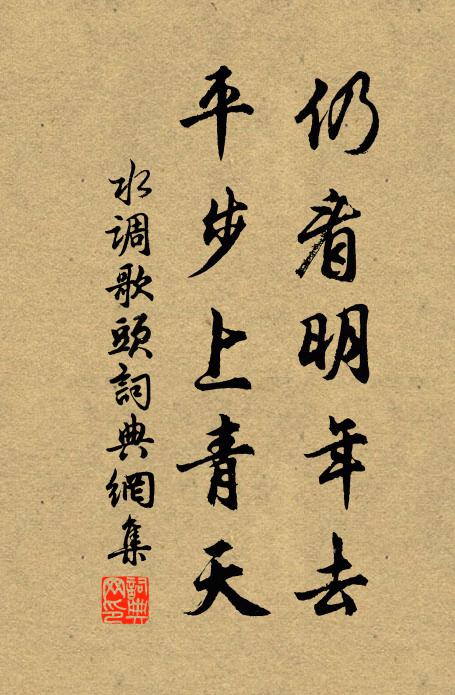 仍看明年去
平步上青天
水调歌頭詞典網集
詞典
网印